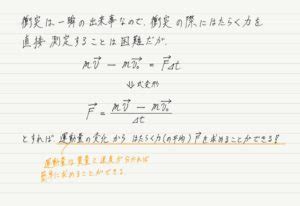 衝突は一瞬の出来事なので、衝突の際にはたらく力を
直接測定することは困難だが、
m\vec{v} − m\vec{v₀} = \vec{F}Δt
⇓式変形
\vec{F} = \frac{m\vec{v} − m\vec{v₀}}{Δt}
とすれば運動量の変化からはたらく力(の平均)\vec{F}を求めることができる!
運動量は質量と速度が分かれば
簡単に求めることができる